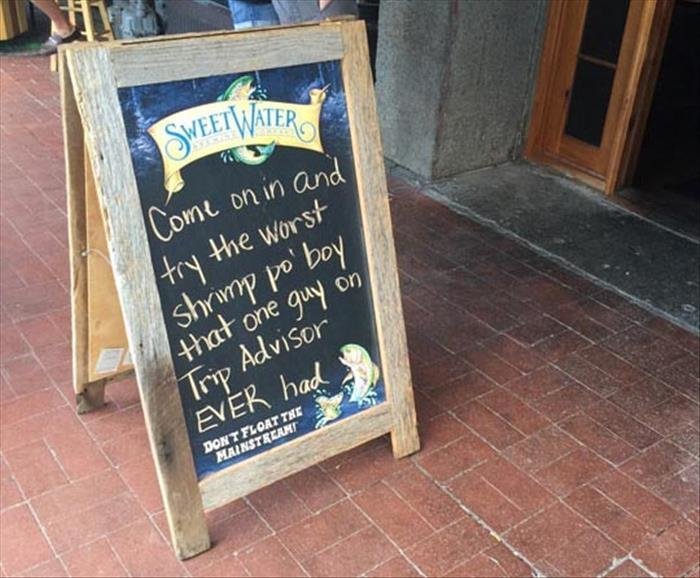 SWEETWATER
BREWING COMPANY
Come on in and
try the worst
shrimp po' boy
that one guy on
Trip Advisor
EVER had
DON'T FLOAT THE
MAINSTREAM!